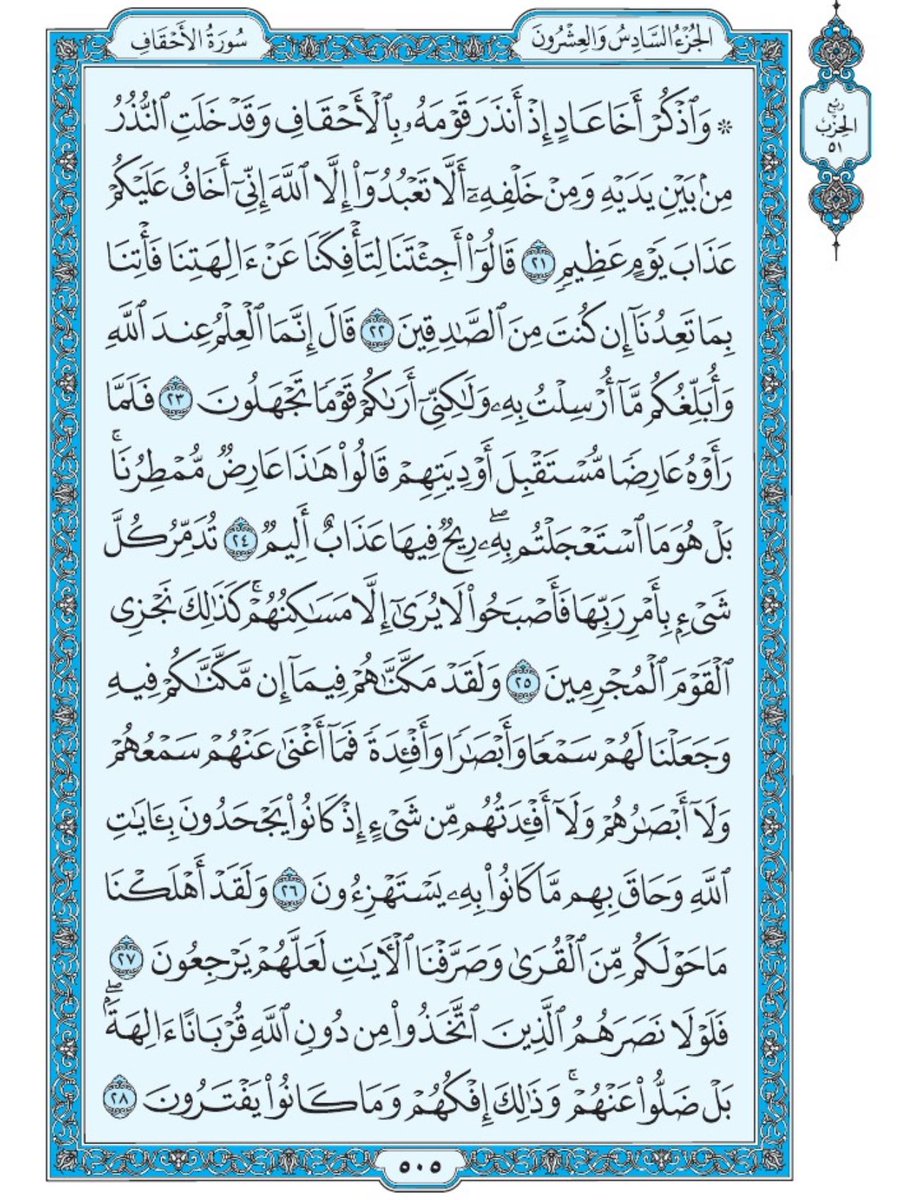 الجُزْءُ السَّادِسُ وَالعِشْرُونَ
سُورَةُ الأَحْقَافِ
رُبع
الحِزْب
٥١
۞ وَٱذْكُرْ أَخَا عَادٍ إِذْ أَنذَرَ قَوْمَهُۥ بِٱلْأَحْقَافِ وَقَدْ خَلَتِ ٱلنُّذُرُ
مِنۢ بَيْنِ يَدَيْهِ وَمِنْ خَلْفِهِۦٓ أَلَّا تَعْبُدُوٓا۟ إِلَّا ٱللَّهَ إِنِّىٓ أَخَافُ عَلَيْكُمْ
عَذَابَ يَوْمٍ عَظِيمٍ ٢١ قَالُوٓا۟ أَجِئْتَنَا لِتَأْفِكَنَا عَنْ ءَالِهَتِنَا فَأْتِنَا
بِمَا تَعِدُنَآ إِن كُنتَ مِنَ ٱلصَّـٰدِقِينَ ٢٢ قَالَ إِنَّمَا ٱلْعِلْمُ عِندَ ٱللَّهِ
وَأُبَلِّغُكُم مَّآ أُرْسِلْتُ بِهِۦ وَلَـٰكِنِّىٓ أَرَىٰكُمْ قَوْمًا تَجْهَلُونَ ٢٣ فَلَمَّا
رَأَوْهُ عَارِضًا مُّسْتَقْبِلَ أَوْدِيَتِهِمْ قَالُوا۟ هَـٰذَا عَارِضٌ مُّمْطِرُنَا ۚ
بَلْ هُوَ مَا ٱسْتَعْجَلْتُم بِهِۦ ۖ رِيحٌ فِيهَا عَذَابٌ أَلِيمٌ ٢٤ تُدَمِّرُ كُلَّ
شَىْءٍۭ بِأَمْرِ رَبِّهَا فَأَصْبَحُوا۟ لَا يُرَىٰٓ إِلَّا مَسَـٰكِنُهُمْ ۚ كَذَٰلِكَ نَجْزِى
ٱلْقَوْمَ ٱلْمُجْرِمِينَ ٢٥ وَلَقَدْ مَكَّنَّـٰهُمْ فِيمَآ إِن مَّكَّنَّـٰكُمْ فِيهِ
وَجَعَلْنَا لَهُمْ سَمْعًا وَأَبْصَـٰرًا وَأَفْـِٔدَةً فَمَآ أَغْنَىٰ عَنْهُمْ سَمْعُهُمْ
وَلَآ أَبْصَـٰرُهُمْ وَلَآ أَفْـِٔدَتُهُم مِّن شَىْءٍ إِذْ كَانُوا۟ يَجْحَدُونَ بِـَٔايَـٰتِ
ٱللَّهِ وَحَاقَ بِهِم مَّا كَانُوا۟ بِهِۦ يَسْتَهْزِءُونَ ٢٦ وَلَقَدْ أَهْلَكْنَا
مَا حَوْلَكُم مِّنَ ٱلْقُرَىٰ وَصَرَّفْنَا ٱلْـَٔايَـٰتِ لَعَلَّهُمْ يَرْجِعُونَ ٢٧
فَلَوْلَا نَصَرَهُمُ ٱلَّذِينَ ٱتَّخَذُوا۟ مِن دُونِ ٱللَّهِ قُرْبَانًا ءَالِهَةًۢ ۖ
بَلْ ضَلُّوا۟ عَنْهُمْ ۚ وَذَٰلِكَ إِفْكُهُمْ وَمَا كَانُوا۟ يَفْتَرُونَ ٢٨
٥٠٥